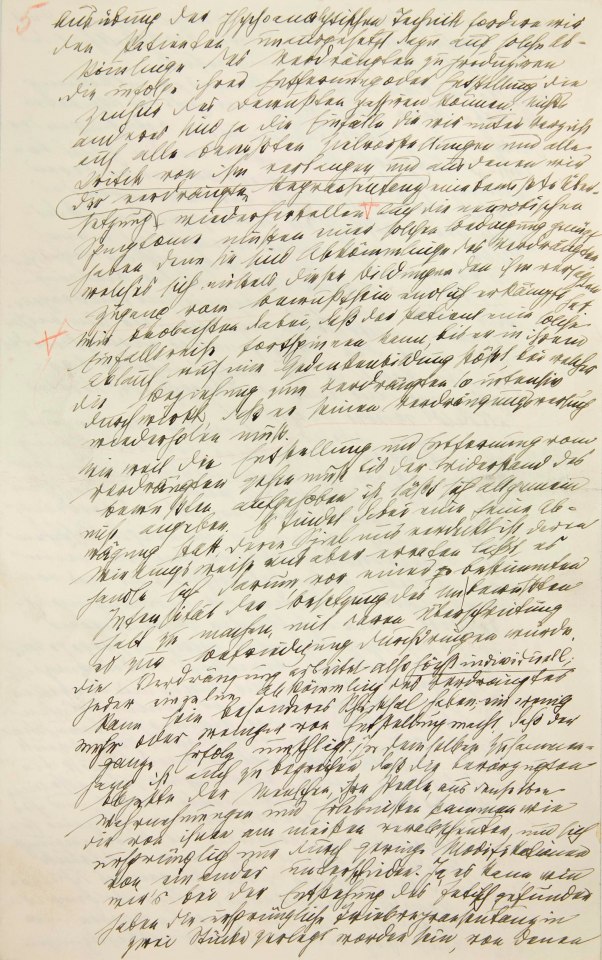 5
Ausübung der psychoanalytischen Technik fordern wir
den Patienten unausgesetzt dazu auf solche Ab-
kömmlinge des Verdrängten zu produziren
die infolge ihrer Entfernung oder Entstellung die
Zensur des Bewußten passiren können. Nichts
anderes sind ja die Einfälle die wir unter Verzicht
auf alle bewußten Zielvorstellungen und alle
Kritik von ihm verlangen und aus denen wir
der verdrängten Repräsentanz eine bewußte Über-
setzung wiederherstellen. Auch die neurotischen
Symptome müssen eine solche Bedingung genügt
haben denn sie sind Abkömmlinge des Verdrängten
welches sich mittels dieser Bildungen den ihm versagten
Zugang vom Bewußtsein endlich erkämpft hat.
Wir beobachten dabei, daß der Patient eine solche
Einfallsreihe fortspinnen kann, bis er in ihrem
Ablauf auf eine Gedankenbildung stößt bei welcher
die Beziehung zum Verdrängten so intensiv
durchwirkt, daß er seinen Verdrängungsversuch
wiederholen muß.
Wie weit die Entstellung und Entfernung vom
Verdrängten gehen muß bis der Widerstand des
Bewußten aufgehoben ist läßt sich allgemein
nicht angeben. Es findet dabei eine feine Ab-
wägung statt, deren Spiel uns verdeckt ist deren
Wirkungsweise uns aber erraten läßt, es
handle sich darum vor einer bestimmten
Intensität der Besetzung des Unbewußten
halt zu machen, mit deren Überschreitung
es zur Befriedigung durchdringen würde.
Die Verdrängung arbeitet also höchst individuell;
jeder einzelne Abkömmling des Verdrängten
kann sein besonderes Schicksal haben ein wenig
mehr oder weniger von Entstellung macht daß der
ganze Erfolg umschlägt. In demselben Zusammen-
hang ist auch zu begreifen daß die bevorzugten
Objekte der Menschen, ihre Ideale aus denselben
Wahrnehmungen und Erlebnissen stammen wie
die von ihnen am meisten verabscheuten, und sich
ursprünglich nur durch geringe Modifikationen
von einander unterscheiden. Ja, es kann wie
wir's bei der Entstehung des Fetisch gefunden
haben die ursprüngliche Triebrepräsentanz in
zwei Stücke zerlegt worden sein, von denen